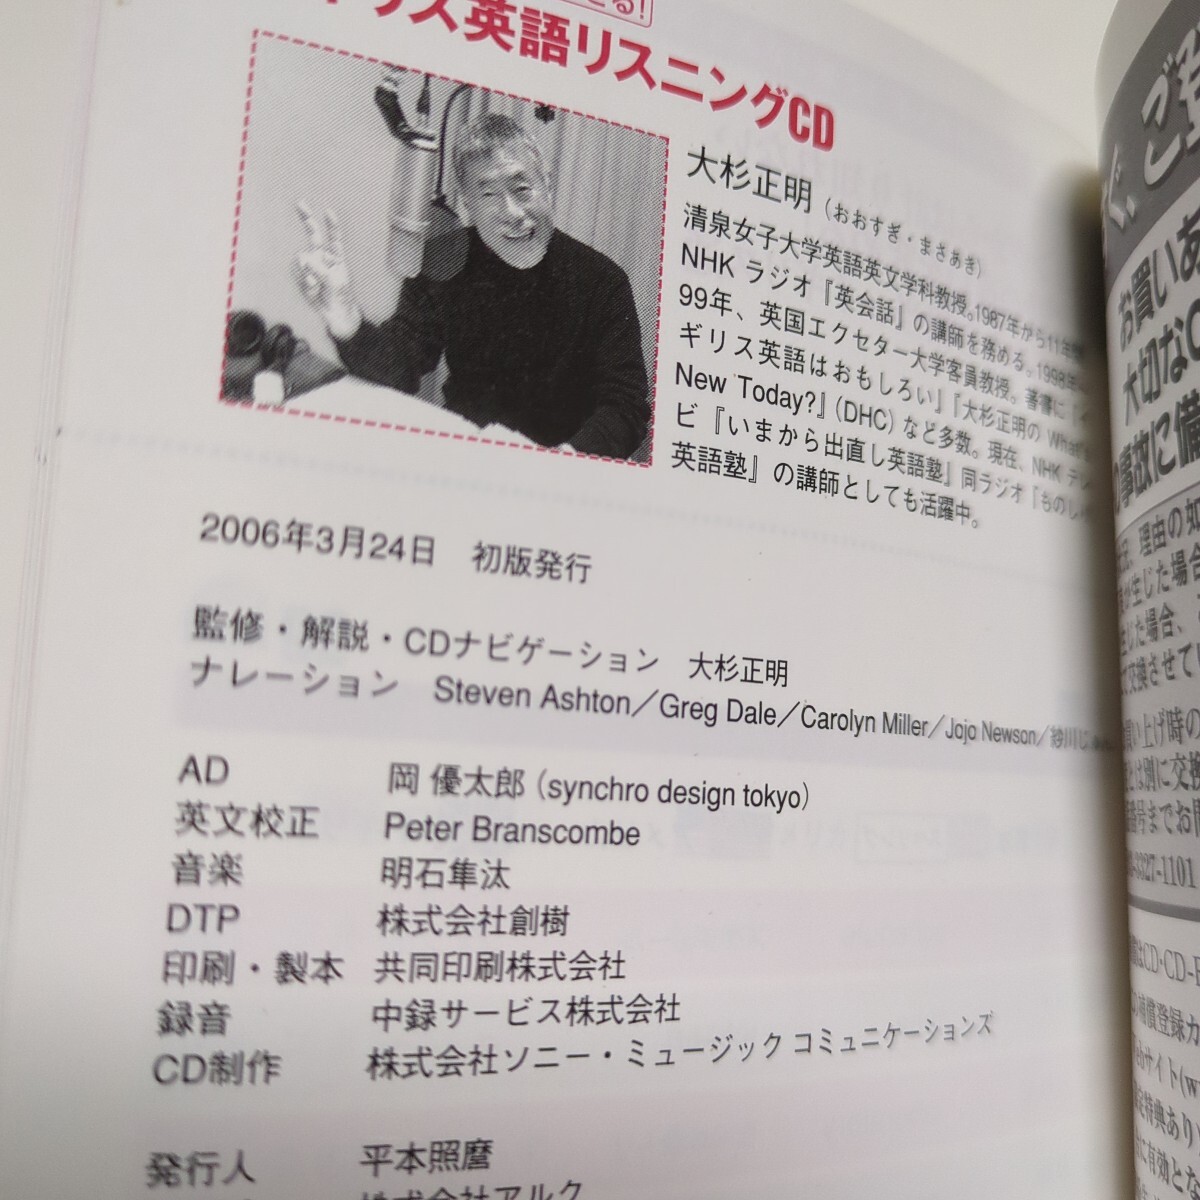 る!
ギリス英語リスニングCD
大杉正明(おおすぎ・まさあき)
清泉女子大学英語英文学科教授。1987年から11年
NHK ラジオ『英会話』の講師を務める。1998年
99年、英国エクセター大学客員教授。著書に『イ
ギリス英語はおもしろい』『大杉正明の What's
New Today?』(DHC)など多数。現在、NHK テレ
ビ『いまから出直し英語塾』同ラジオ『ものしり
英語塾』の講師としても活躍中。
2006年3月24日 初版発行
監修・解説・CDナビゲーション 大杉正明
ナレーション Steven Ashton/Greg Dale/Carolyn Miller/Jojo Newson/紗川じ
AD 岡 優太郎(synchro design tokyo)
英文校正 Peter Branscombe
音楽 明石隼汰
DTP 株式会社創樹
印刷・製本 共同印刷株式会社
録音 中録サービス株式会社
CD制作 株式会社ソニー・ミュージック コミュニケーションズ
発行人 平本照麿
株式会社アルク
お買いあ
大切なC
事故に備
理由の如
生じた場合
した場合、
交換させてい
買い上げ時の
とは別に交換
番号までお問
3327-1101
CD・CD-R
補償登録カ
ebサイト(w
定特典あり)
に有効とな